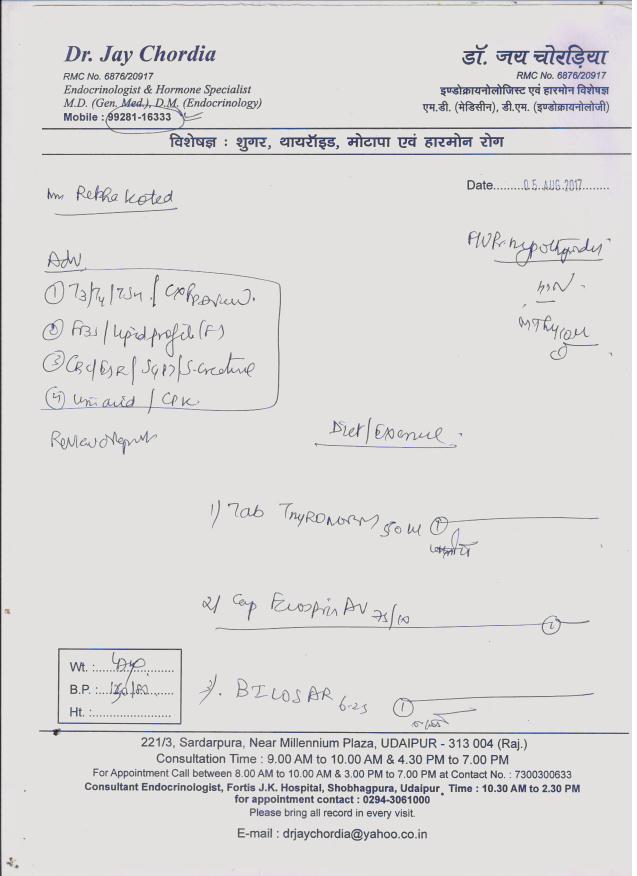 Dr. Jay Chordia
RMC No. 6876/20917
Endocrinologist & Hormone Specialist
M.D. (Gen. Med.), D.M. (Endocrinology)
Mobile : 99281-16333
डॉ. जय चोरड़िया
RMC No. 6876/20917
इण्डोक्रायनोलोजिस्ट एवं हारमोन विशेषज्ञ
एम.डी. (मेडिसीन), डी.एम. (इण्डोक्रायनोलोजी)
विशेषज्ञ : शुगर, थायरॉइड, मोटापा एवं हारमोन रोग
Date 05 AUG 2017
Rekha
Adv
① T3/T4/TSH /
② FBS / Lipid profile (F)
③ CBC/ESR / SGPT/S. creatinine
④ Uric acid / CPK
Review
Diet/Exercise
1) Tab THYRONORM 50 ①
2) Cap Ecosprin AV 75/10
BILOSAR 6.25 ①
Wt. :
B.P. :
Ht. :
221/3, Sardarpura, Near Millennium Plaza, UDAIPUR - 313 004 (Raj.)
Consultation Time : 9.00 AM to 10.00 AM & 4.30 PM to 7.00 PM
For Appointment Call between 8.00 AM to 10.00 AM & 3.00 PM to 7.00 PM at Contact No. : 7300300633
Consultant Endocrinologist, Fortis J.K. Hospital, Shobhagpura, Udaipur, Time : 10.30 AM to 2.30 PM
for appointment contact : 0294-3061000
Please bring all record in every visit.
E-mail : drjaychordia@yahoo.co.in